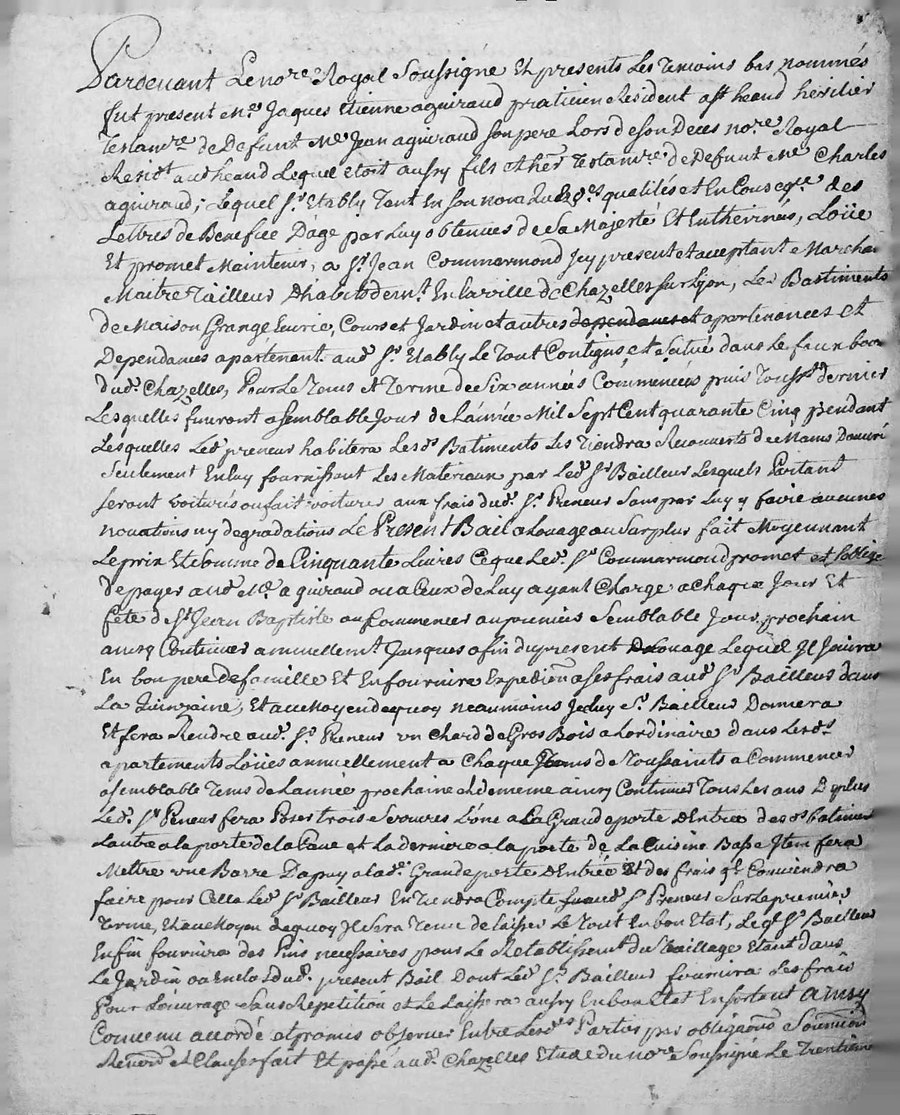 Pardevant Le nore Royal Soussigné Et presents Les Temoins bas nommés
fut present Me Jaques Etienne aguiraud praticien Resident aud heaud heritier
Testamre de Defunt Me Jean aguiraud son pere Lors de son Deces nore Royal
Residt aud heaud Lequel etoit aussy fils et her Testamre de Defunt Me Charles
aguiraud; Lequel Sr Etably Tant En son nom qualités et En Conseqce des
Lettres de Benefice D'age par Luy obtenues de Sa Majesté Et Entherinées, Loüe
Et promet Maintenir, a Sr Jean Commarmond Jcy present et acceptant Marchan
Maitre Tailleur D'habits demt En la ville de Chazelles sur Lyon, Les Bastiments
de Maison Grange Ecurie, Cours et Jardin et autres apartenances et
Dependances apartenant aud Sr Etably Le Tout Contigus et Situé dans Le faux bour
dud. Chazelles, Pour Le Tems et Terme de Six années Commencées puis Toussts dernier
Lesquelles finiront a semblable Jour de L'année Mil Sept Cent quarante Cinq pendant
Lesquelles Led. preneur habitera Lesd. Batiments Les Tiendra Recouverts de Mains D'ouvri
Seulement En luy fournissant Les Materiaux par Led. Sr Bailleur Lesquels Partant
Seront voiturés ou fait voiturer aux frais dud. Sr Preneur Sans par Luy y faire aucunes
novations ny degradations Le Present Bail a Loüage au Surplus fait Moyennant
Le prix Et Somme de Cinquante Livres Ce que Led. Sr Commarmond promet et S'oblige
de payer aud. Me aguiraud ou a Ceux de Luy ayant Charge a Chaque Jour Et
fete de St Jean Baptiste a Commencer au premier Semblable Jour prochain
ainsy Continuer annuellemt Jusques a fin du present Loüage Lequel Jl Joüira
En bon pere de famille Et En fournira Expedition a ses frais aud. Sr Bailleur dans
La quinzaine; Et au Moyen de quoy neaumoins Jceluy Sr Bailleur Donnera
Et fera Rendre aud. Sr Preneur un Chard de Gros Bois a L'ordinaire dans Lesds
apartements Loüés annuellement a Chaque Tems de Toussaints a Commencer
a semblable Tems de L'année prochaine et de meme ainsy Continuer Tous Les ans De plus
Led. Sr Preneur fera Poser trois Serrures L'une a La Grande porte d'Entrée des ds batimens
L'autre a la porte de la Cave et La derniere a la porte de La Cuisine Basse Jtem fera
Mettre une Barre D'apuy a lad. Grande porte d'Entrée Et des frais ql Conviendra
faire pour Celle Led. Sr Bailleur En Tiendra Compte aud. Sr Preneur Sur Le premier
Terme, Et au Moyen de quoy Jl Sera Tenu de Laisser Le Tout En bon Etat, Leqt Sr Bailleur
Enfin fournira des Pins necessaires pour Le Retablissemt du Treillage Etant dans
Le Jardin ou Enclos dud. present Bail Dont Led. Sr Bailleur fournira Les frais
Pour L'ouvrage Sans Repetition et Le Laissera aussy En bon Etat En Sortant Ainsy
Convenu accordé et promis observer Entre Lesdes Parties par obligaons Soumions
Renons et Clauses fait Et passé aud. Chazelles Etude du nore Soussigné Le Trentieme